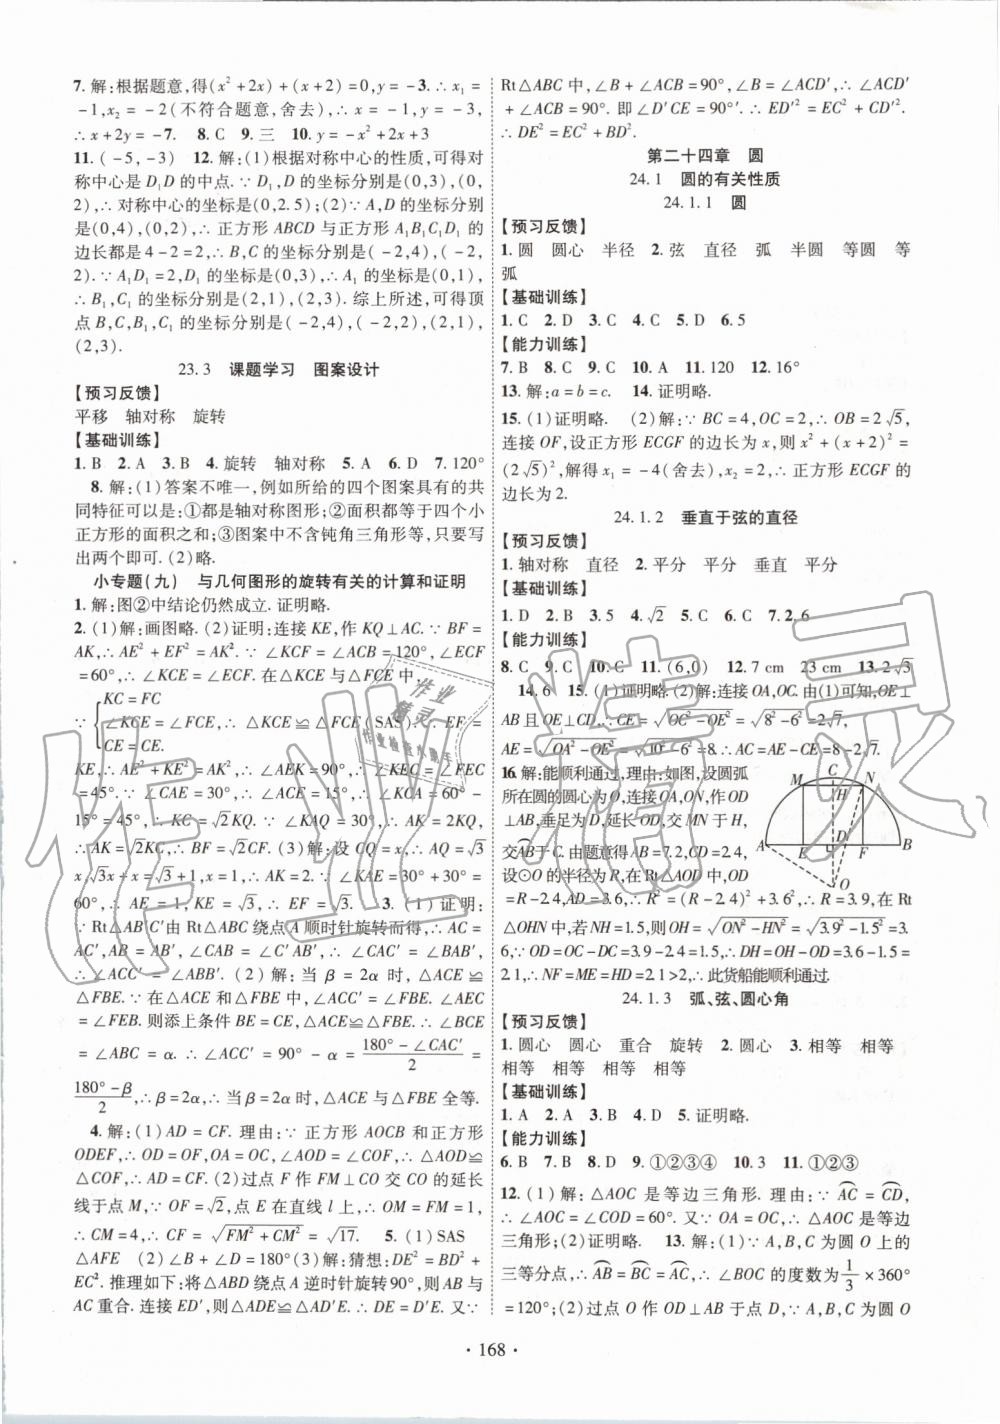 7. 解:根据题意,得(x²+2x)+(x+2)=0,y=-3.∴x₁=
-1,x₂=-2(不符合题意,舍去),∴x=-1,y=-3,
∴x+2y=-7. 8. C 9. 三 10. y=-x²+2x+3
11. (-5,-3) 12. 解:(1)根据对称中心的性质,可得对
称中心是D₁D的中点.∵D₁,D的坐标分别是(0,3),(0,
2),∴对称中心的坐标是(0,2.5);(2)∵A,D的坐标分别
是(0,4),(0,2),∴正方形ABCD与正方形A₁B₁C₁D₁的
边长都是4-2=2,∴B,C的坐标分别是(-2,4),(-2,
2).∵A₁D₁=2,D₁的坐标是(0,3),∴A₁的坐标是(0,1),
∴B₁,C₁的坐标分别是(2,1),(2,3).综上所述,可得顶
点B,C,B₁,C₁的坐标分别是(-2,4),(-2,2),(2,1),
(2,3).
23.3 课题学习 图案设计
【预习反馈】
平移 轴对称 旋转
【基础训练】
1. B 2. A 3. B 4. 旋转 轴对称 5. A 6. D 7. 120°
8. 解:(1)答案不唯一,例如所给的四个图案具有的共
同特征可以是:①都是轴对称图形;②面积都等于四个小
正方形的面积之和;③图案中不含钝角三角形等,只要写
出两个即可.(2)略.
小专题(九) 与几何图形的旋转有关的计算和证明
1. 解:图②中结论仍然成立.证明略.
2. (1)解:画图略.(2)证明:连接KE,作KQ⊥AC.∵BF=
AK,∴AE²+EF²=AK².∵∠KCF=∠ACB=120°,∠ECF
=60°,∴∠KCE=∠ECF.在△KCE与△FCE中,
KC=FC
∵{∠KCE=∠FCE,∴△KCE≌△FCE(SAS),∴EF=
CE=CE.
KE,∴AE²+KE²=AK²,∴∠AEK=90°,∴∠KEC=∠FEC
=45°.∵∠CAE=30°,∴∠ACE=15°,∴∠KCA=60°-
15°=45°,∴KC=√2KQ.∵∠KAQ=30°,∴AK=2KQ,
∴AK=√2KC,∴BF=√2CF.(3)解:设CQ=x,∴AQ=√3
x,√3x+x=√3+1,x=1,∴AK=2.∵∠KAE=30°+30°=
60°,∴AE=1,KE=√3,∴EF=√3. 3. (1)证明:
∵Rt△AB′C′由Rt△ABC绕点A顺时针旋转而得,∴AC=
AC′,AB=AB′,∠CAB=∠C′AB′,∴∠CAC′=∠BAB′,
∴∠ACC′=∠ABB′.(2)解:当β=2α时,△ACE≌
△FBE.∵在△ACE和△FBE中,∠ACC′=∠FBE.∠AEC
=∠FEB.则添上条件BE=CE,△ACE≌△FBE.∴∠BCE
=∠ABC=α.∴∠ACC′=90°-α=(180°-∠CAC′)/2=
(180°-β)/2,∴β=2α,∴当β=2α时,△ACE与△FBE全等.
4. 解:(1)AD=CF.理由:∵正方形AOCB和正方形
ODEF,∴OD=OF,OA=OC,∠AOD=∠COF,∴△AOD≌
△COF,∴AD=CF.(2)过点F作FM⊥CO交CO的延长
线于点M,∵OF=√2,点E在直线l上,∴OM=FM=1,
∴CM=4,∴CF=√(FM²+CM²)=√17. 5. (1)SAS
△AFE (2)∠B+∠D=180°(3)解:猜想:DE²=BD²+
EC².推理如下:将△ABD绕点A逆时针旋转90°,则AB与
AC重合.连接ED′,则△ADE≌△AD′E.∴DE=D′E.又∵
Rt△ABC中,∠B+∠ACB=90°,∠B=∠ACD′,∴∠ACD′
+∠ACB=90°.即∠D′CE=90°′.∴ED′²=EC²+CD′².
∴DE²=EC²+BD².
第二十四章 圆
24.1 圆的有关性质
24.1.1 圆
【预习反馈】
1. 圆 圆心 半径 2. 弦 直径 弧 半圆 等圆 等
弧
【基础训练】
1. C 2. D 3. C 4. C 5. D 6. 5
【能力训练】
7. B 8. C 9. C 10. A 11. 120 12. 16°
13. 解:a=b=c. 14. 证明略.
15. (1)证明略. (2)解:∵BC=4,OC=2,∴OB=2√5,
连接OF,设正方形ECGF的边长为x,则x²+(x+2)²=
(2√5)²,解得x₁=-4(舍去),x₂=2,∴正方形ECGF的
边长为2.
24.1.2 垂直于弦的直径
【预习反馈】
1. 轴对称 直径 2. 平分 平分 垂直 平分
【基础训练】
1. D 2. B 3. 5 4. √2 5. C 6. C 7. 2,6
【能力训练】
8. C 9. C 10. C 11. (6,0) 12. 7 cm 23 cm 13. 2√3
14. 6 15. (1)证明略.(2)解:连接OA,OC.由(1)可知,OE⊥
AB且OE⊥CD,∴CE=√(OC²-OE²)=√(8²-6²)=2√7,
AE=√(OA²-OE²)=√(10²-6²)=8.∴AC=AE-CE=8-2√7.
16. 解:能顺利通过,理由:如图,设圆弧
所在圆的圆心为O,连接OA,ON,作OD
⊥AB,垂足为D,延长OD,交MN于H,
交AB于C.由题意得AB=7.2,CD=2.4,
设⊙O的半径为R,在Rt△AOD中,OD
=R-2.4,AD=3.6,∴R²=(R-2.4)²+3.6²,∴R=3.9,在Rt
△OHN中,若NH=1.5,则OH=√(ON²-HN²)=√(3.9²-1.5²)=3.
6,∵OD=OC-DC=3.9-2.4=1.5,∴DH=OH-OD=3.6-1.5=
2.1,∴NF=ME=HD=2.1>2,∴此货船能顺利通过.
M C N
H
A E D F B
O
24.1.3 弧、弦、圆心角
【预习反馈】
1. 圆心 圆心 重合 旋转 2. 圆心 3. 相等 相等
相等 相等 相等 相等
【基础训练】
1. A 2. A 3. B 4. D 5. 证明略.
【能力训练】
6. B 7. B 8. D 9. ①②③④ 10. 3 11. ①②③
12. (1)解:△AOC是等边三角形.理由:∵A͡C=C͡D,
∴∠AOC=∠COD=60°.又∵OA=OC,∴△AOC是等边
三角形;(2)证明略. 13. 解:(1)∵A,B,C为圆O上的
三等分点,∴A͡B=B͡C=A͡C,∴∠BOC的度数为1/3×360°
=120°;(2)过点O作OD⊥AB于点D,∵A,B,C为圆O
·168·
作业精灵
作业
精灵